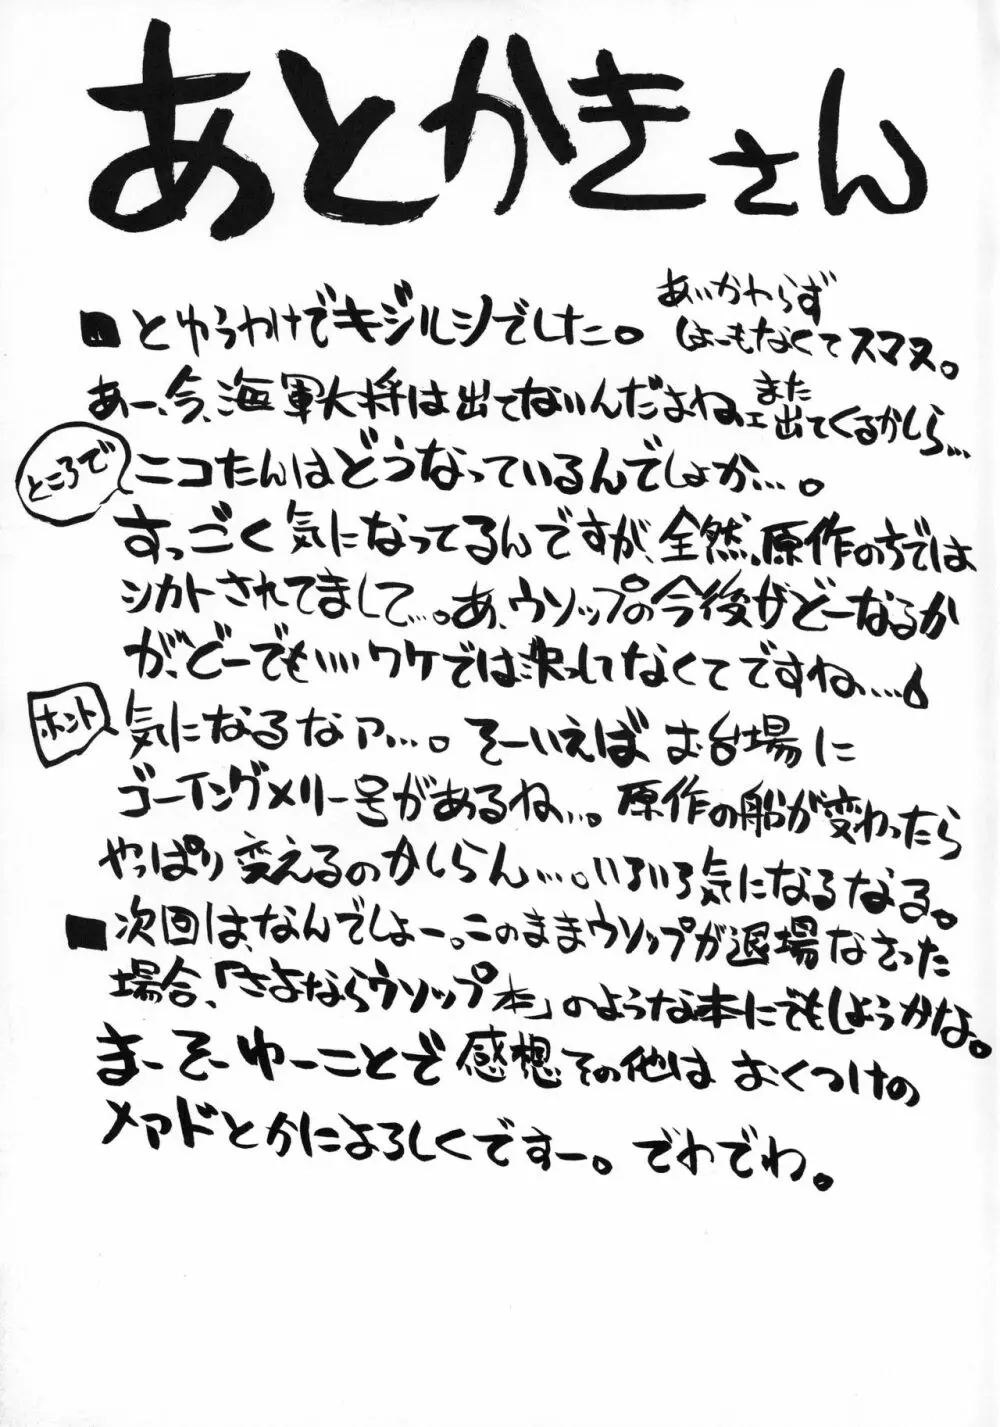 あとかきさん
■とゆうわけでキジルシでした。
あいかわらず
しょーもなくてスマヌ。
あー、今、海軍大将は出てないんだよね、
また
出てくるかしら…
ところで
ニコたんはどうなっているんでしょか…。
すっごく気になってるんですが、全然、原作の方では
シカトされてまして…。あ、ウソップの今後がどーなるか
が、どーでも‥‥ワケでは決してなくてですね…
ホント
気になるなァ…。そーいえばお台場に
ゴーイングメリー号があるね…。原作の船が変わったら
やっぱり変えるのかしらん…。いろいろ気になるなる。
■次回は、なんでしょー。このままウソップが退場なさった
場合、「さよならウソップ本」のような本にでもしようかな。
まーそーゆーことで感想その他はおくつけの
メアドとかによろしくですー。でわでわ。